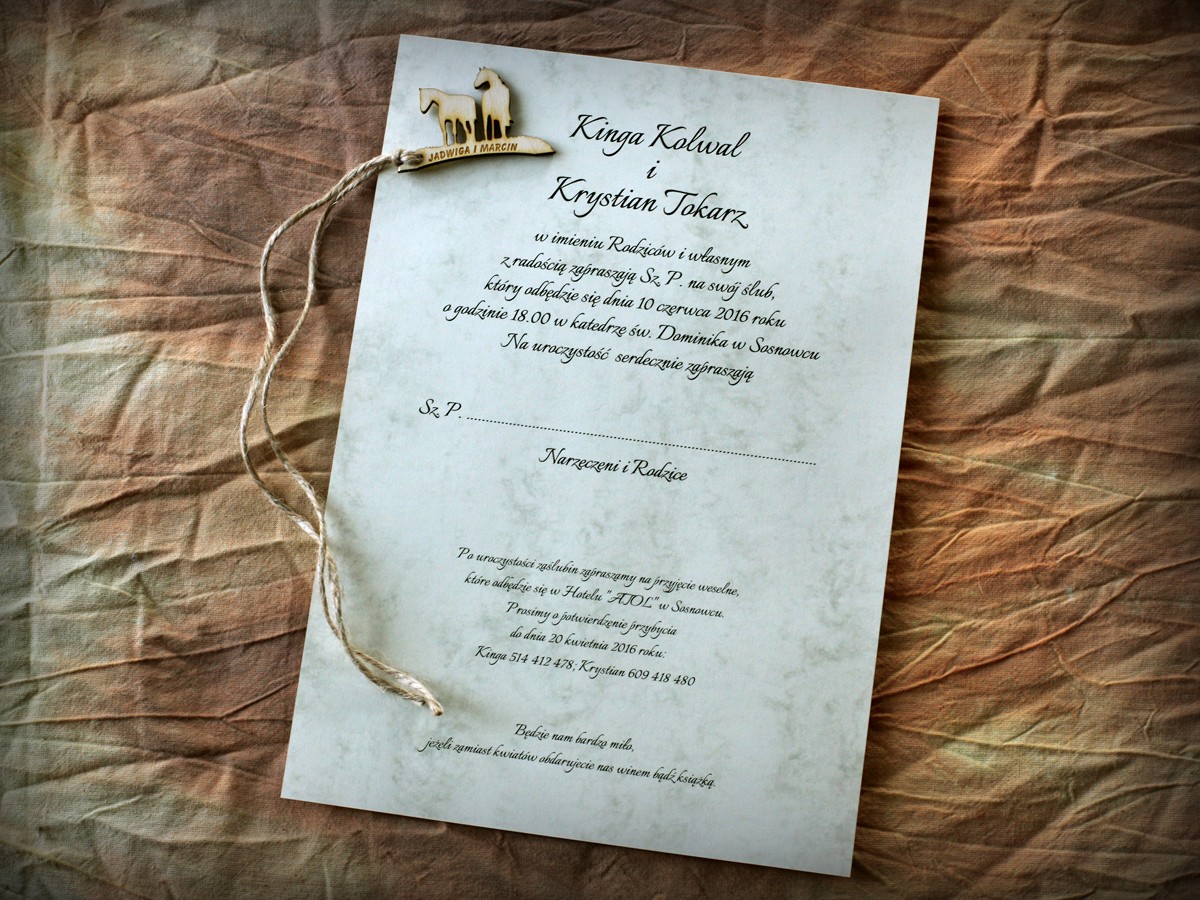 JADWIGA I MARCIN
Kinga Kolwal
i
Krystian Tokarz
w imieniu Rodziców i własnym
z radością zapraszają Sz. P. na swój ślub,
który odbędzie się dnia 10 czerwca 2016 roku
o godzinie 18.00 w katedrze św. Dominika w Sosnowcu
Na uroczystość serdecznie zapraszają
Sz. P. ........................................................................
Narzeczeni i Rodzice
Po uroczystości zaślubin zapraszamy na przyjęcie weselne,
które odbędzie się w Hotelu "ATOL" w Sosnowcu.
Prosimy o potwierdzenie przybycia
do dnia 20 kwietnia 2016 roku:
Kinga 514 412 478; Krystian 609 418 480
Będzie nam bardzo miło,
jeżeli zamiast kwiatów obdarujecie nas winem bądź książką.